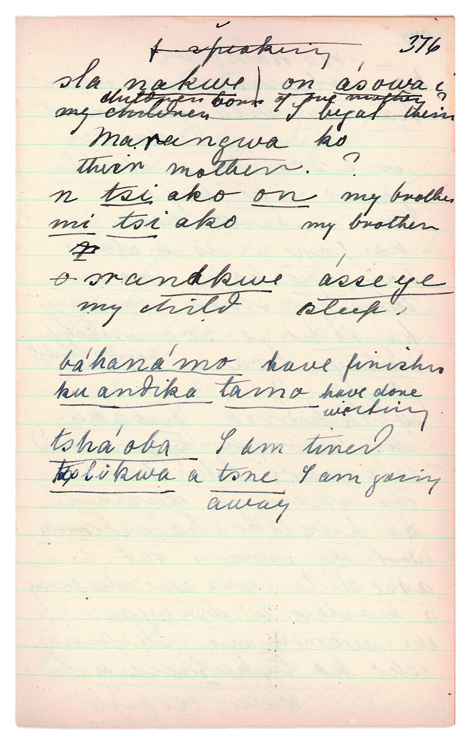 376
f speaking
sla nakwe) on ásowa
children born of one mother ?
my children I begat them
Marangwa ko
their mother. ?
n tsi ako on my brother
mi tsi ako my brother
srandkwe ásseye
my child sleep.
báhaná'mo have finished
ku andika tamo have done
writing
tshá'oba I am tired
likwa a tsne I am going
away